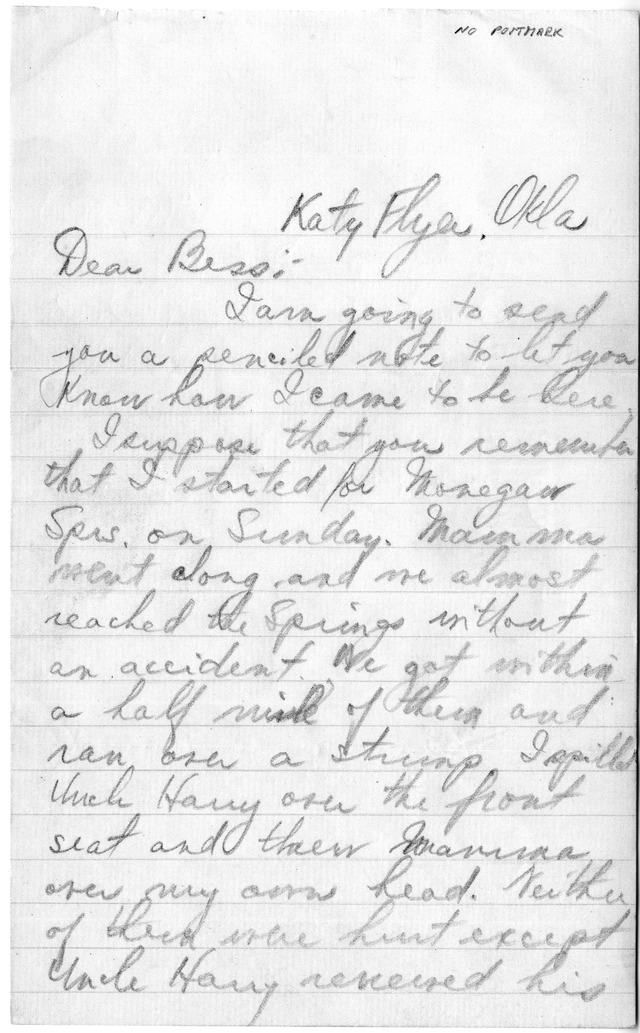 NO POSTMARK
Katy Flyer, Okla
Dear Bess:-
I am going to send
you a penciled note to let you
know how I came to be here.
I suppose that you remember
that I started for Monegaw
Sprs. on Sunday. Mamma
went along and we almost
reached the Springs without
an accident. We got within
a half mile of them and
ran over a stump I spilled
Uncle Harry over the front
seat and threw Mamma
over my own head. Neither
of them were hurt except
Uncle Harry renewed his